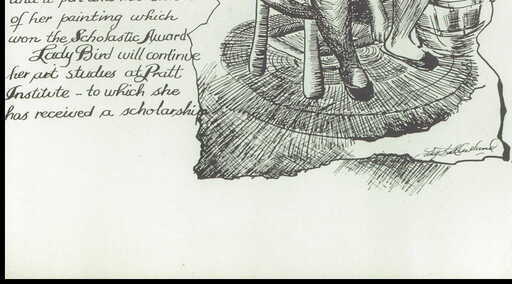 of her painting which
won the Scholastic Award
Lady Bird will continue
her art studies at Pratt
Institute - to which she
has received a scholarship